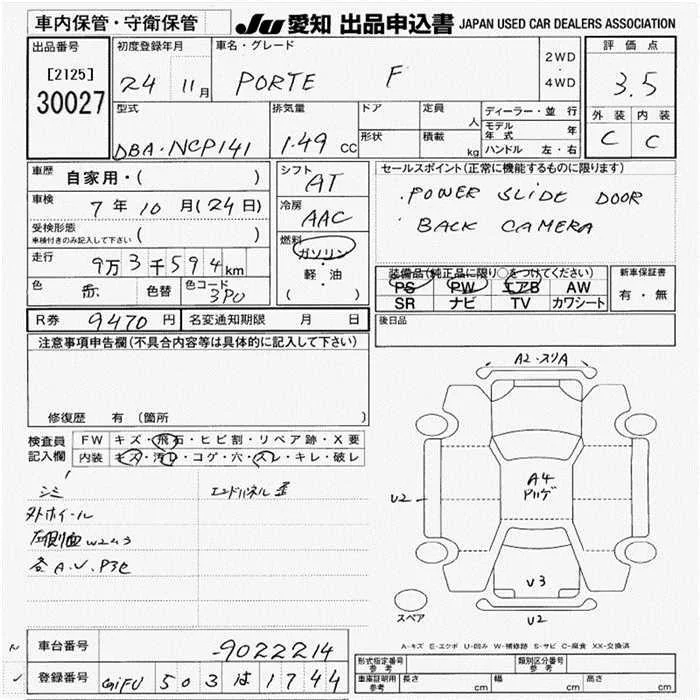 車内保管・守衛保管
JU 愛知 出品申込書 JAPAN USED CAR DEALERS ASSOCIATION
出品番号
[2125]
30027
初度登録年月
24 11月
車名・グレード
PORTE F
2WD
・
4WD
評価点
3.5
外装 内装
C C
型式
DBA・NCP141
排気量
1.49 CC
ドア
形状
定員
人
積載
kg
ディーラー・並行
モデル年式 年
ハンドル 左・右
車歴 自家用・( )
車検 7年10月(24日)
受検形態
車検付きのみ記入して下さい ( )
走行 9万3千594km
色 赤 色替 色コード 3PU
シフト
AT
冷房
AAC
燃料
ガソリン
・
軽・油
( )
セールスポイント(正常に機能するものに限ります)
・POWER SLIDE DOOR
・BACK CAMERA
装備品(純正品に限り○をつけてください)
PS PW エアB AW
SR ナビ TV カワシート
新車保証書
有・無
後日品
R券 9470円 名変通知期限 月 日
注意事項申告欄(不具合内容等は具体的に記入して下さい)
修復歴 有 (箇所 )
検査員
記入欄
FW キズ・飛石・ヒビ割・リペア跡・X要
内装 キズ・汚レ・コゲ・穴・スレ・キレ・破レ
シミ エンドパネル歪
外ホイール
左側面W2 3
各A.U.P3C
A2・スリA
A4
U2
V3
U2
スペア
A-キズ E-エクボ U-凹み W-補修跡 S-サビ C-腐食 XX-交換済
車台番号 -9022214
登録番号 GIFU 503は1744
形式指定番号
参考
類別区分番号
参考
車庫証明用
参考
長さ cm 幅 cm 高さ cm